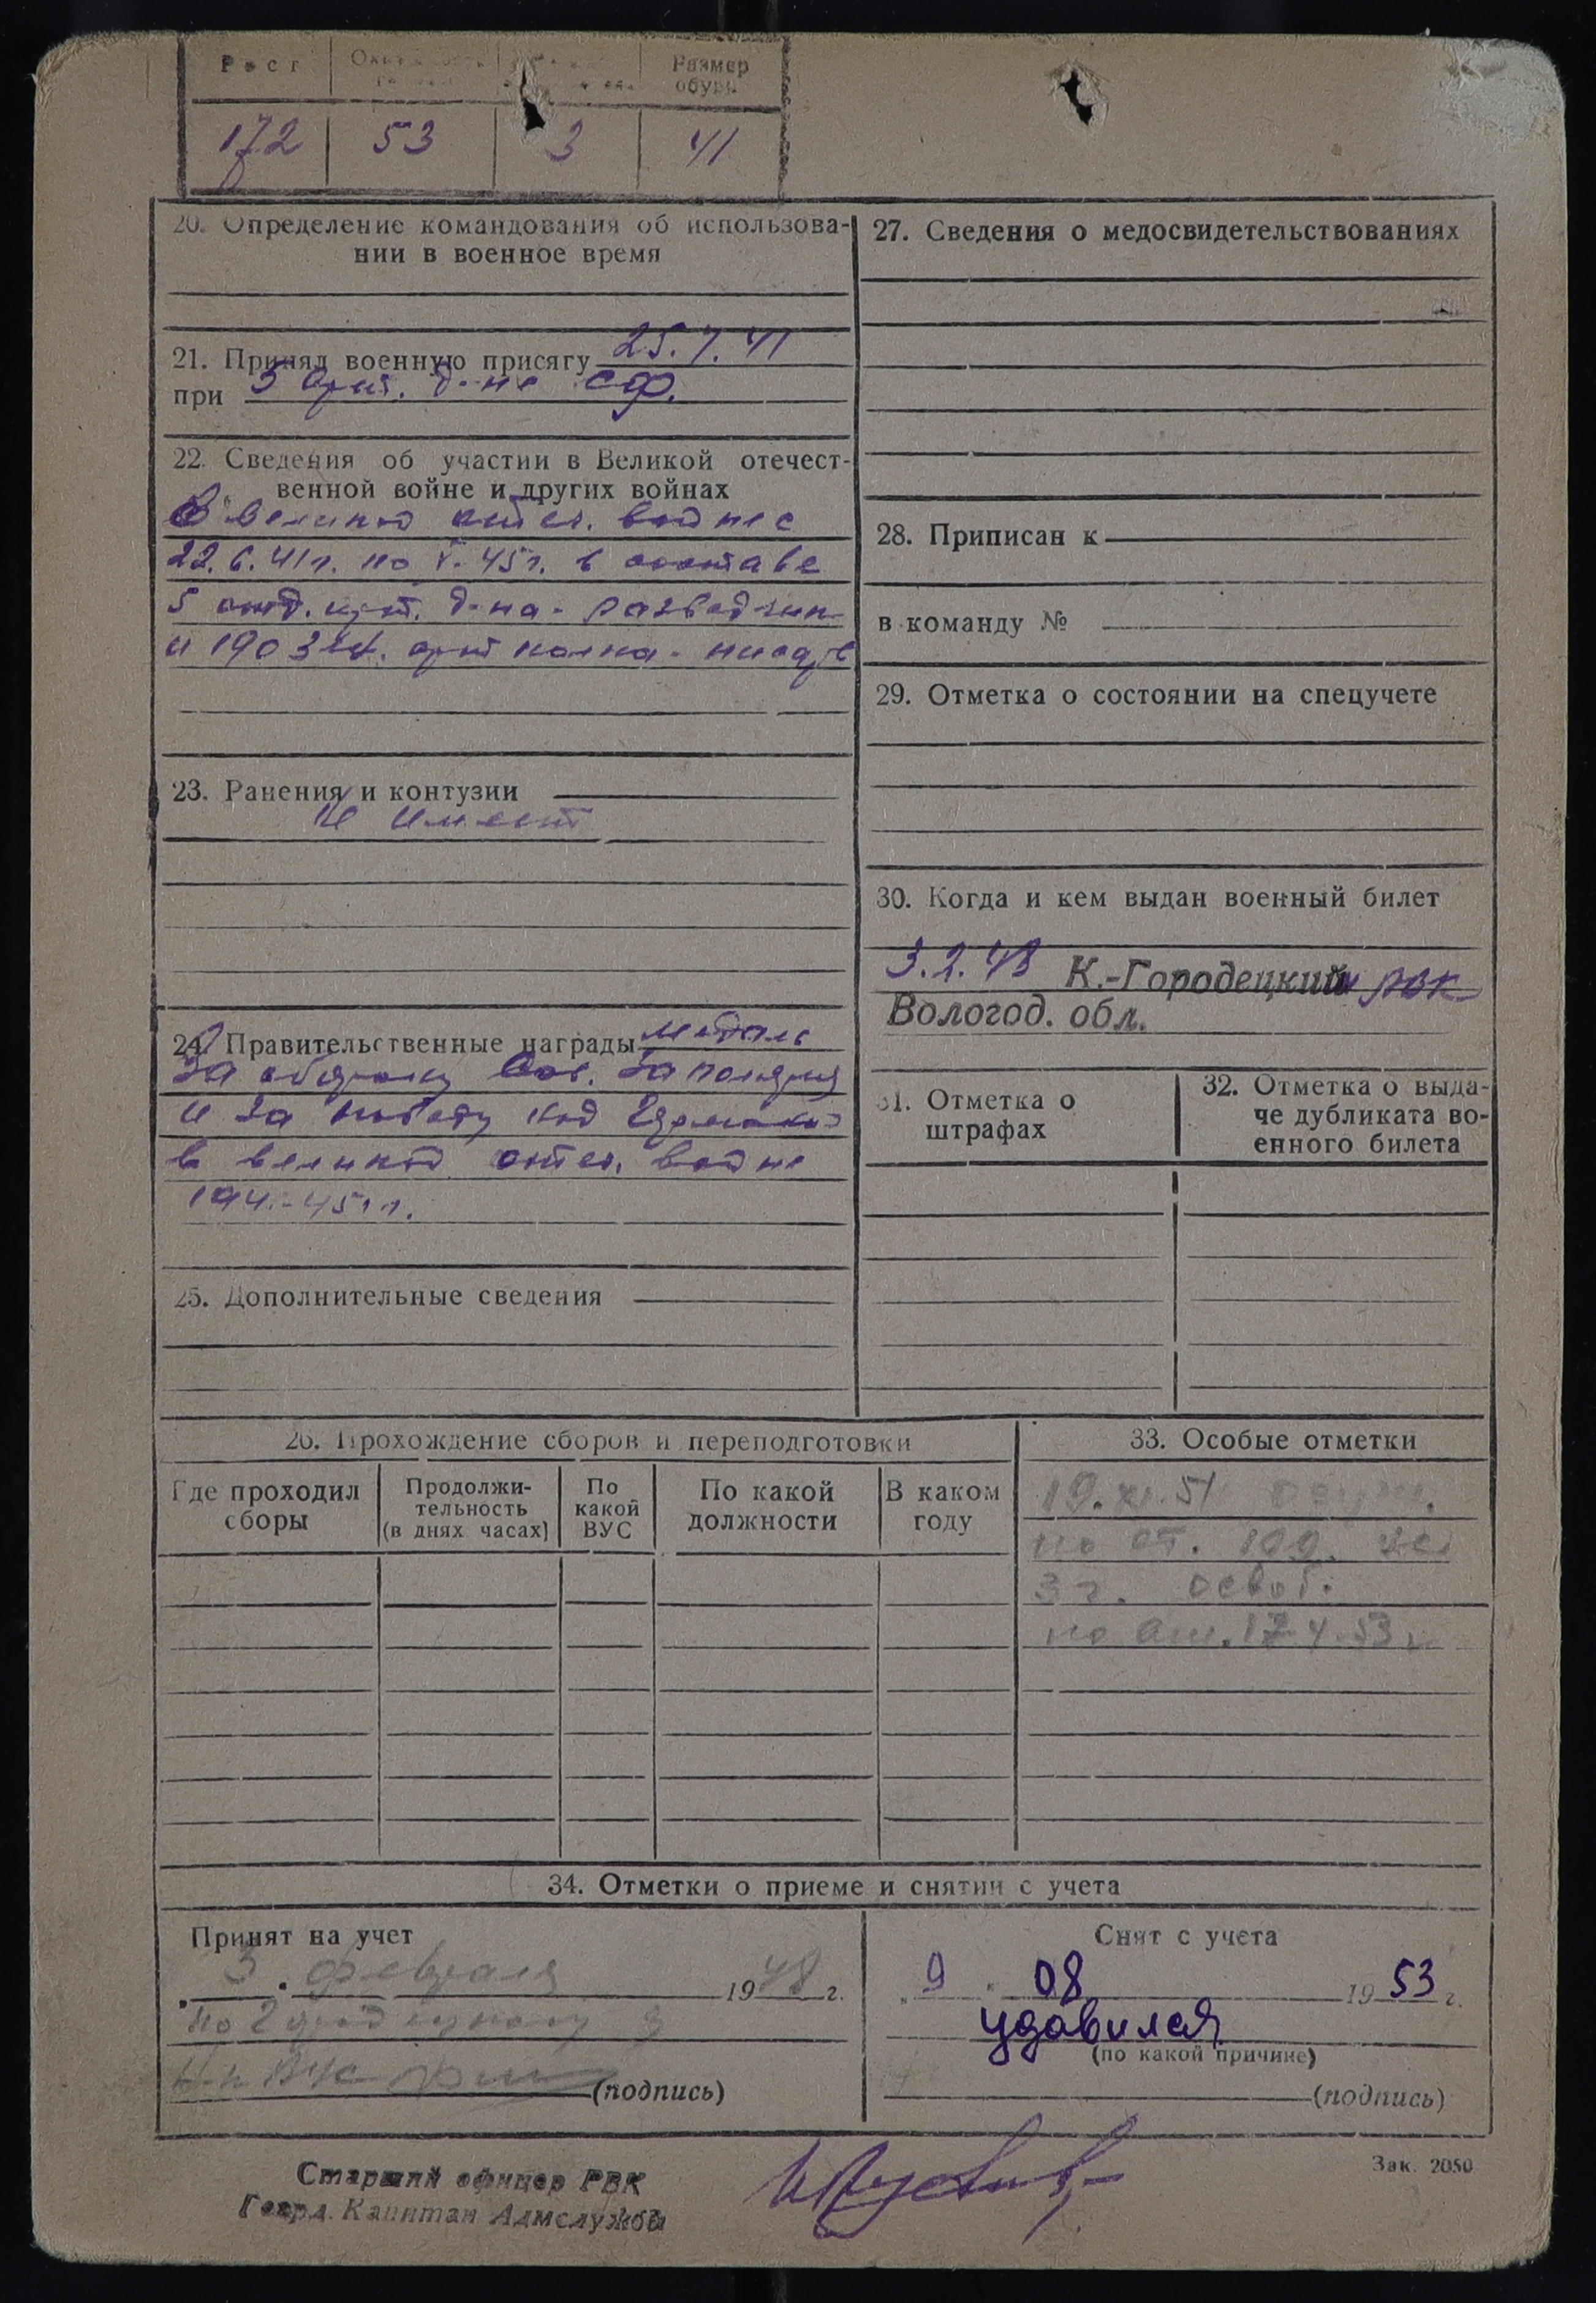 Рост Размер обуви
172 53 3 41
20. Определение командования об использова-
нии в военное время
21. Принял военную присягу 25.7.41
при 5 арт. д-не СФ.
22. Сведения об участии в Великой отечест-
венной войне и других войнах
В великой отеч. войне с
22.6.41г. по V-45г. в составе
5 отд. арт. д-на - разведчик
и 190 арт полка - писарь
23. Ранения и контузии
не имеет
24. Правительственные награды медаль
За оборону Сов. Заполярья
и за победу над Германией
в великой отеч. войне
1941-45гг.
25. Дополнительные сведения
27. Сведения о медосвидетельствованиях
28. Приписан к
в команду №
29. Отметка о состоянии на спецучете
30. Когда и кем выдан военный билет
3.2.48 К.-Городецкий РВК
Вологод. обл.
31. Отметка о
штрафах
32. Отметка о выда-
че дубликата во-
енного билета
26. Прохождение сборов и переподготовки
Где проходил
сборы
Продолжи-
тельность
(в днях часах)
По
какой
ВУС
По какой
должности
В каком
году
33. Особые отметки
19.XI.51 осуж.
по ст. 109 УК
3 г. освоб.
по ам. 17.4.53г
34. Отметки о приеме и снятии с учета
Принят на учет
„3“ февраля 1948 г.
(подпись)
Снят с учета
„9“ 08 1953 г.
удавился
(по какой причине)
(подпись)
Старший офицер РВК
Гвард. Капитан Адмслужбы
Зак. 2050